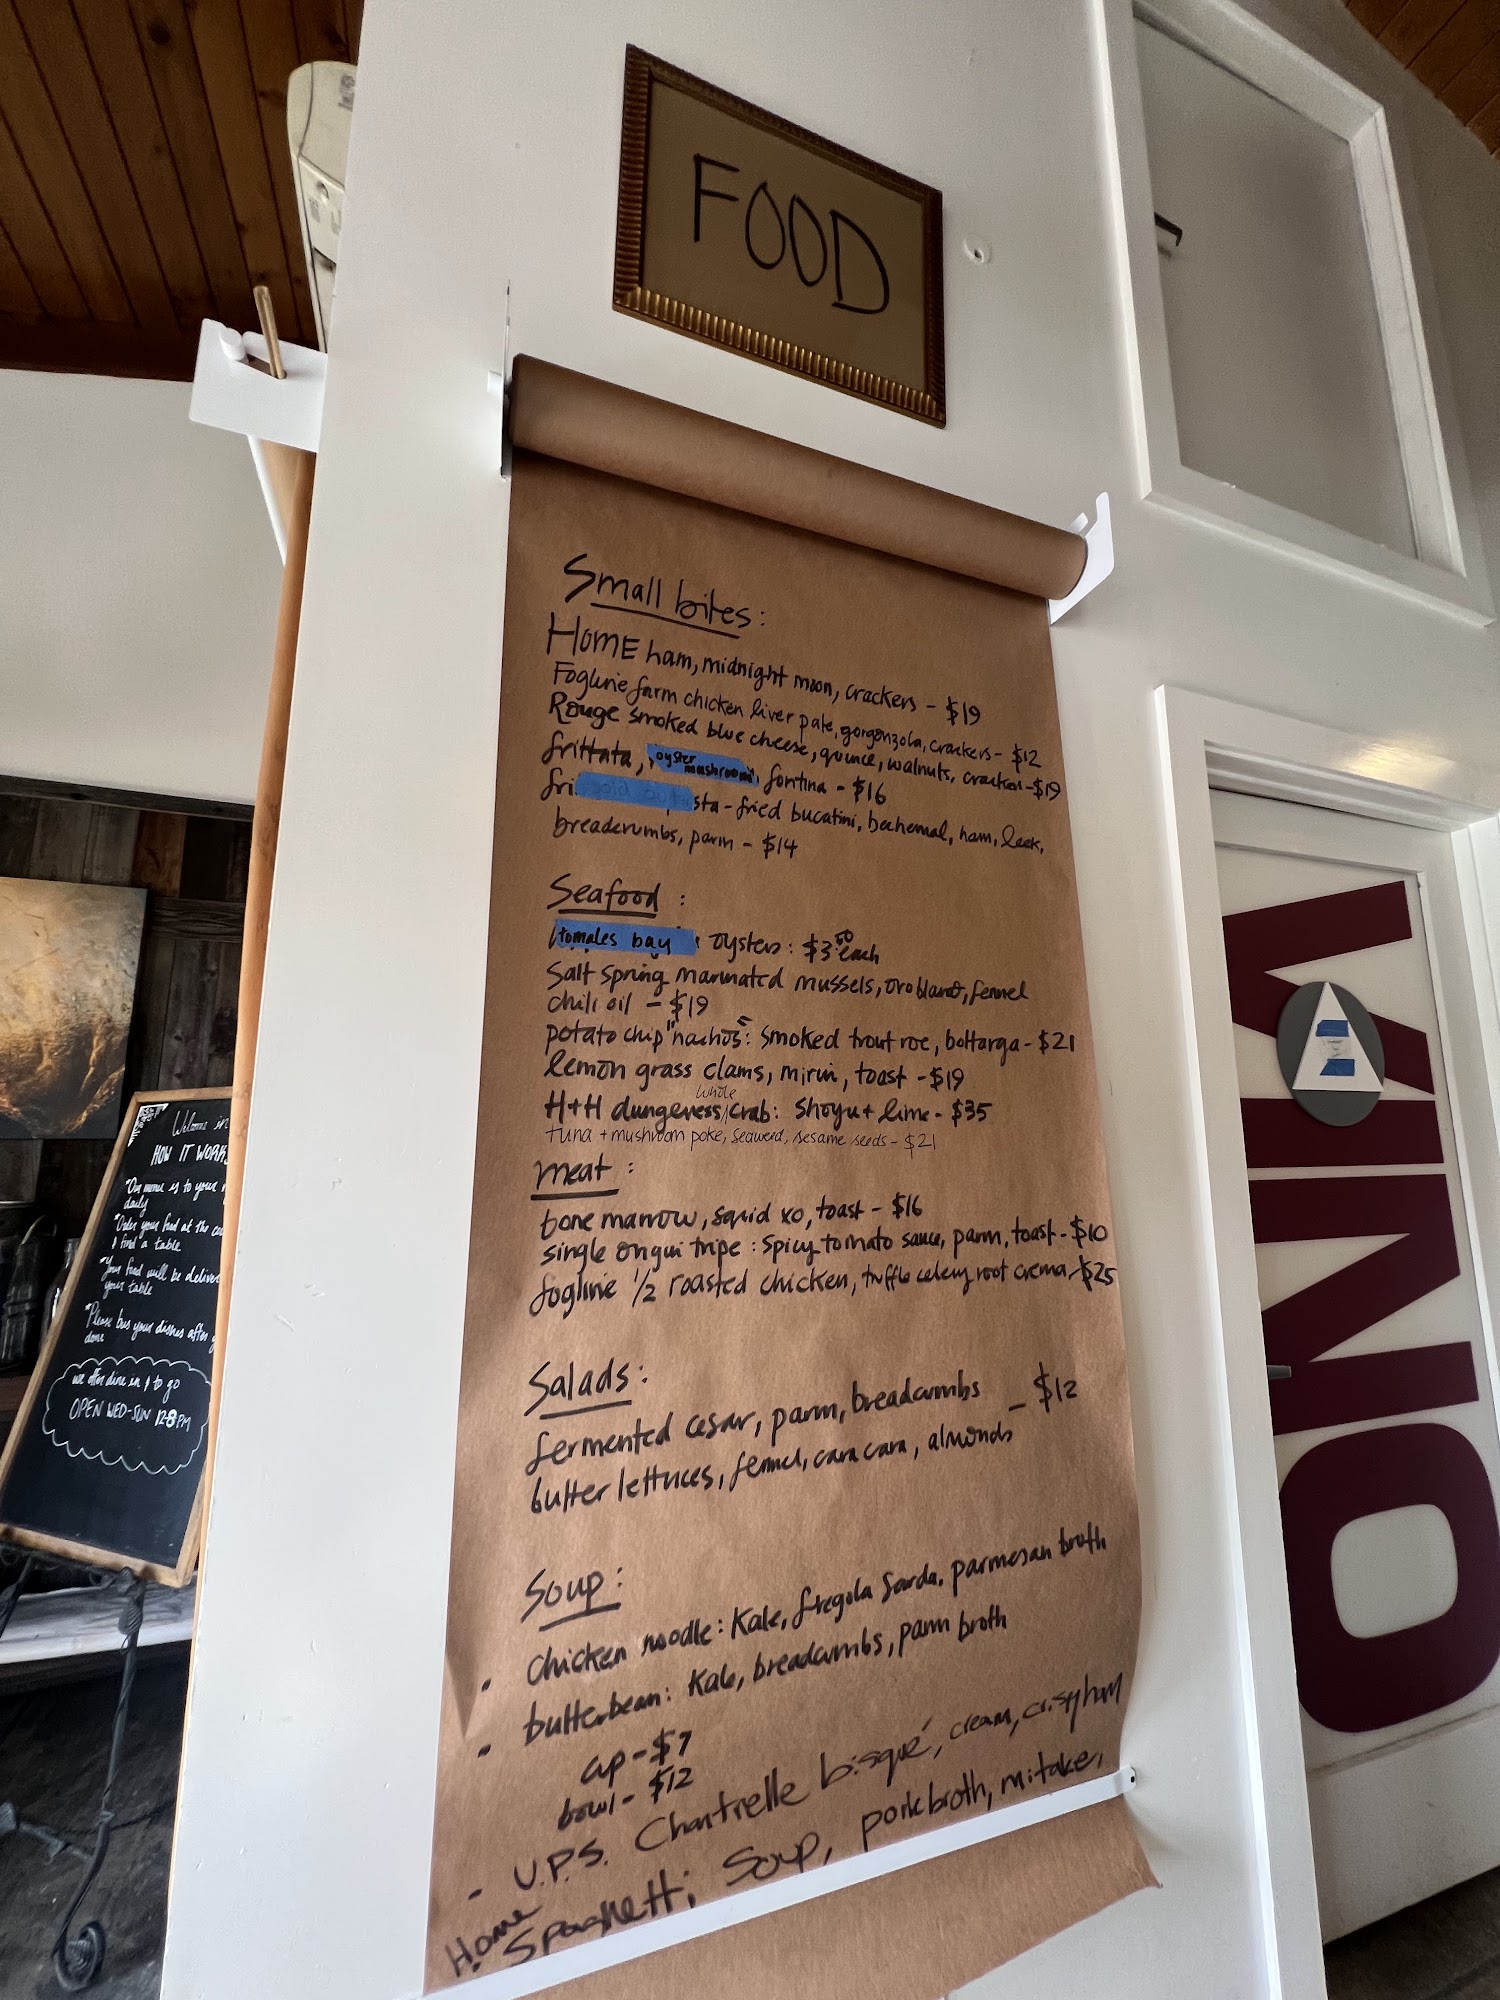 FOOD
Small bites:
HOME ham, midnight moon, crackers - $19
Fogline farm chicken liver pate, gorgonzola, crackers - $12
Rouge smoked blue cheese, quince, walnuts, crackers - $19
frittata, oyster mushroom, fontina - $16
fri sold out sta - fried bucatini, bechemal, ham, leek,
breadcrumbs, parm - $14
Seafood :
tomales bay oysters: $3.50 each
Salt spring marinated mussels, oro blanco, fennel
chili oil - $19
potato chip "nachos": smoked trout roe, bottarga - $21
lemon grass clams, mirin, toast - $19
H+H dungeness whole crab: shoyu + lime - $35
tuna + mushroom poke, seaweed, sesame seeds - $21
meat :
bone marrow, squid xo, toast - $16
single ongui tripe : spicy tomato sauce, parm, toast - $10
fogline 1/2 roasted chicken, truffle celery root crema - $25
Salads:
fermented cesar, parm, breadcrumbs - $12
butter lettuces, fennel, cara cara, almonds
Soup:
- chicken noodle: Kale, fregola sarda, parmesan broth
- butterbean: Kale, breadcrumbs, parm broth
cup - $7
bowl - $12
- U.P.S. Chantrelle bisque, cream, crispy ham
Home Spaghetti Soup, pork broth, mitake,
Welcome in
HOW IT WORKS
*Our menu is to your
daily
*Order your food at the
& find a table
*Your food will be
your table
*Please bus your dishes after
done
we offer dine in & to go
OPEN WED-SUN 12-8PM
OMNIVI